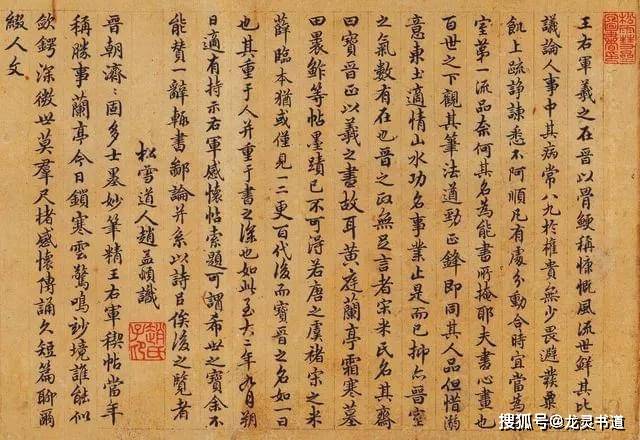 王右軍羲之在晉以骨鯁稱慷慨風流世鮮其比
議論人事中其病常八九於權貴無少畏避發粟
飢上疏諍諫悉不阿順凡有處分動合時宜當為
室第一流品奈何其名為能書所掩耶夫書心畫也
百世之下觀其筆法遒勁正鋒即同其人品但惜溺
意東土適情山水功名事業止是而已抑亦晉室
之氣數有在也晉之政無足言者宋米氏名其齋
曰寶晉正以羲之書故耳黃庭蘭亭霜寒墓
田裹鮓等帖墨蹟已不可得若唐之虞褚宋之米
薛臨本猶或僅見一二更百代後而寶晉之名如一日
也其重于人并重于書之深也如此至大二年九月朔
日適有持示右軍感懷帖索題可謂希世之寶余不
能贊一辭輒書鄙論并系以詩呂俟後之覽者
松雪道人趙孟頫識
晉朝濟濟固多士墨妙筆精王右軍禊帖當年
稱勝事蘭亭今日鎖寒雲驚鳴妙境誰能似
斂鍔深微世莫羣尺楮感懷傳誦久短篇聊爾
綴人文
趙氏子昂
搜狐号@龙灵书道